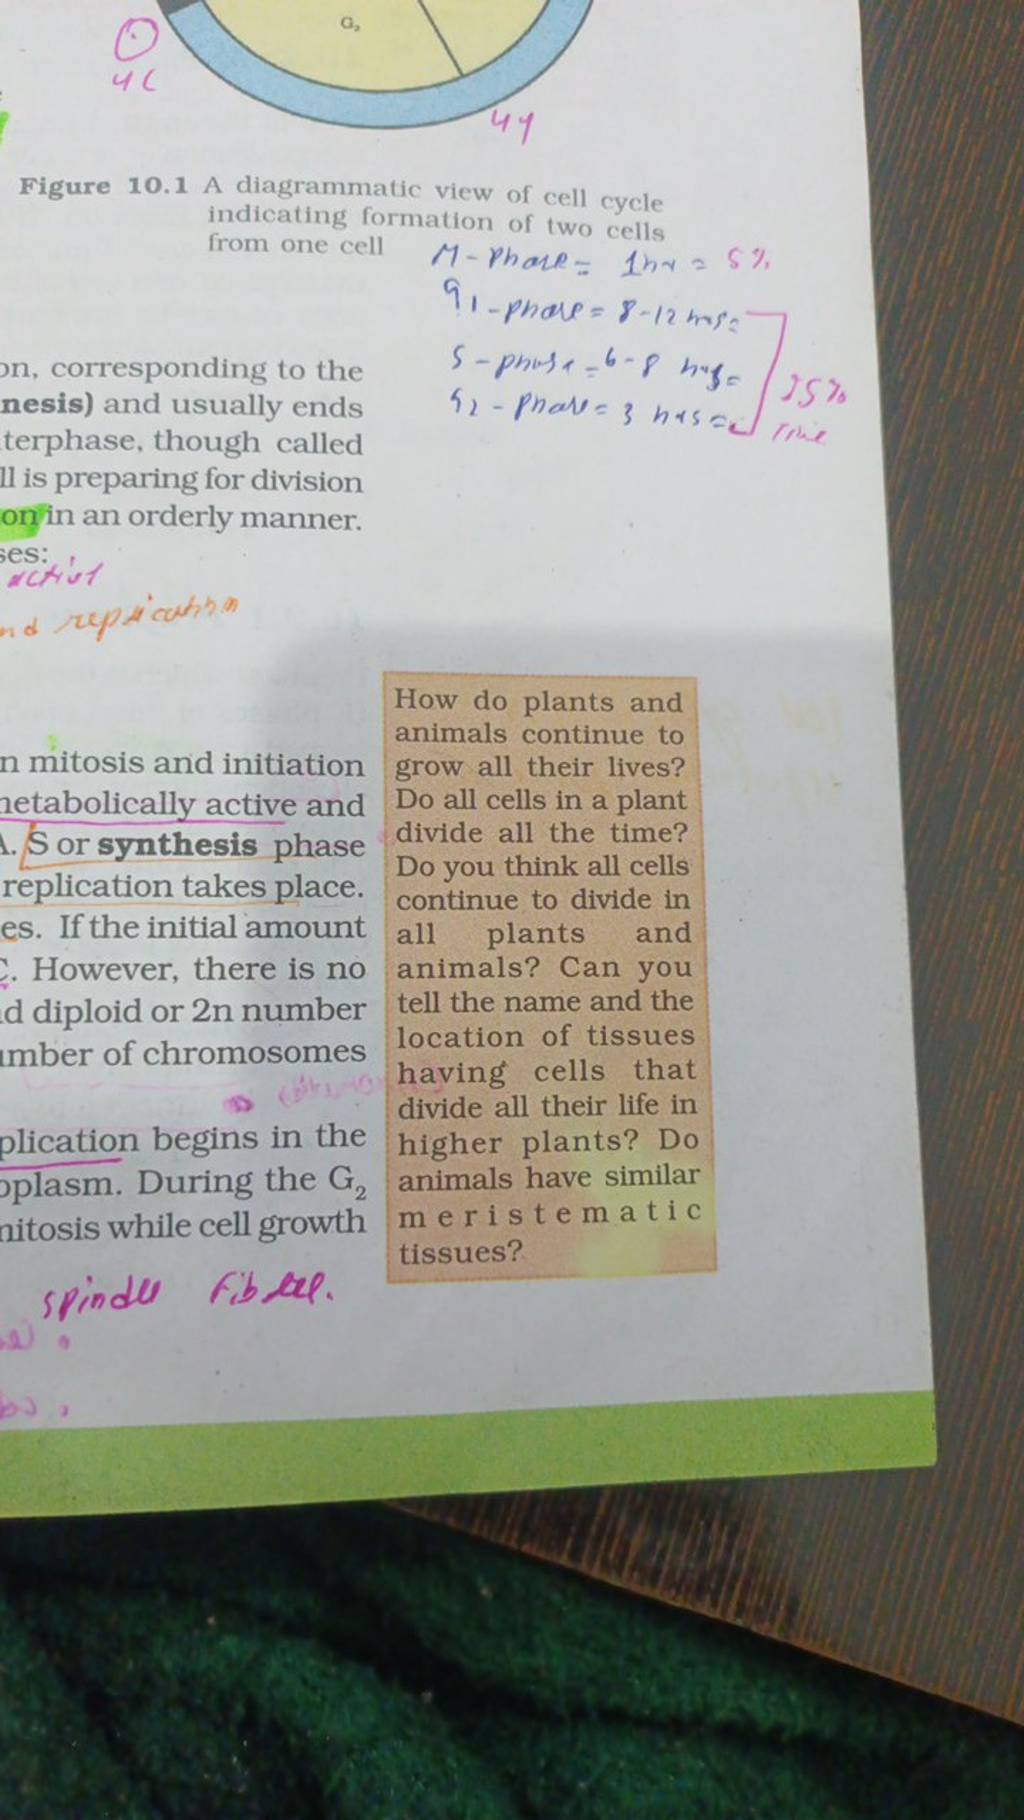 G₂
4C
44
Figure 10.1 A diagrammatic view of cell cycle
indicating formation of two cells
from one cell
M-Phase = 1hr = 5%
G1-phase = 8-12 hrs=
S-phase = 6-8 hrs=
G2-Phase = 3 hrs =
95%
Time
on, corresponding to the
nesis) and usually ends
terphase, though called
ll is preparing for division
on in an orderly manner.
ses:
activt
nd replication
n mitosis and initiation
netabolically active and
A. S or synthesis phase
replication takes place.
es. If the initial amount
C. However, there is no
d diploid or 2n number
umber of chromosomes
plication begins in the
oplasm. During the G₂
nitosis while cell growth
spindle
How do plants and
animals continue to
grow all their lives?
Do all cells in a plant
divide all the time?
Do you think all cells
continue to divide in
all plants and
animals? Can you
tell the name and the
location of tissues
having cells that
divide all their life in
higher plants? Do
animals have similar
meristematic
tissues?